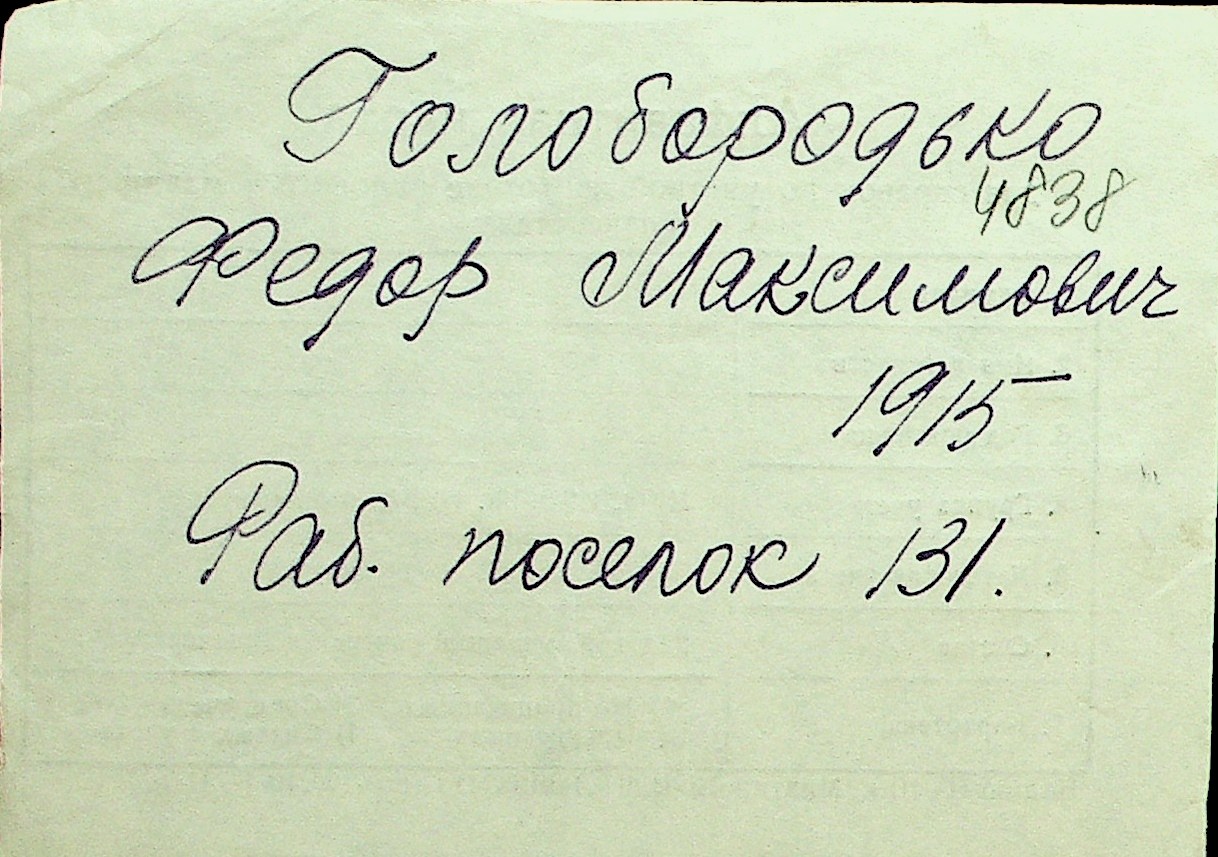 Голобородько
4838
Федор Максимович
1915
Раб. поселок 131.